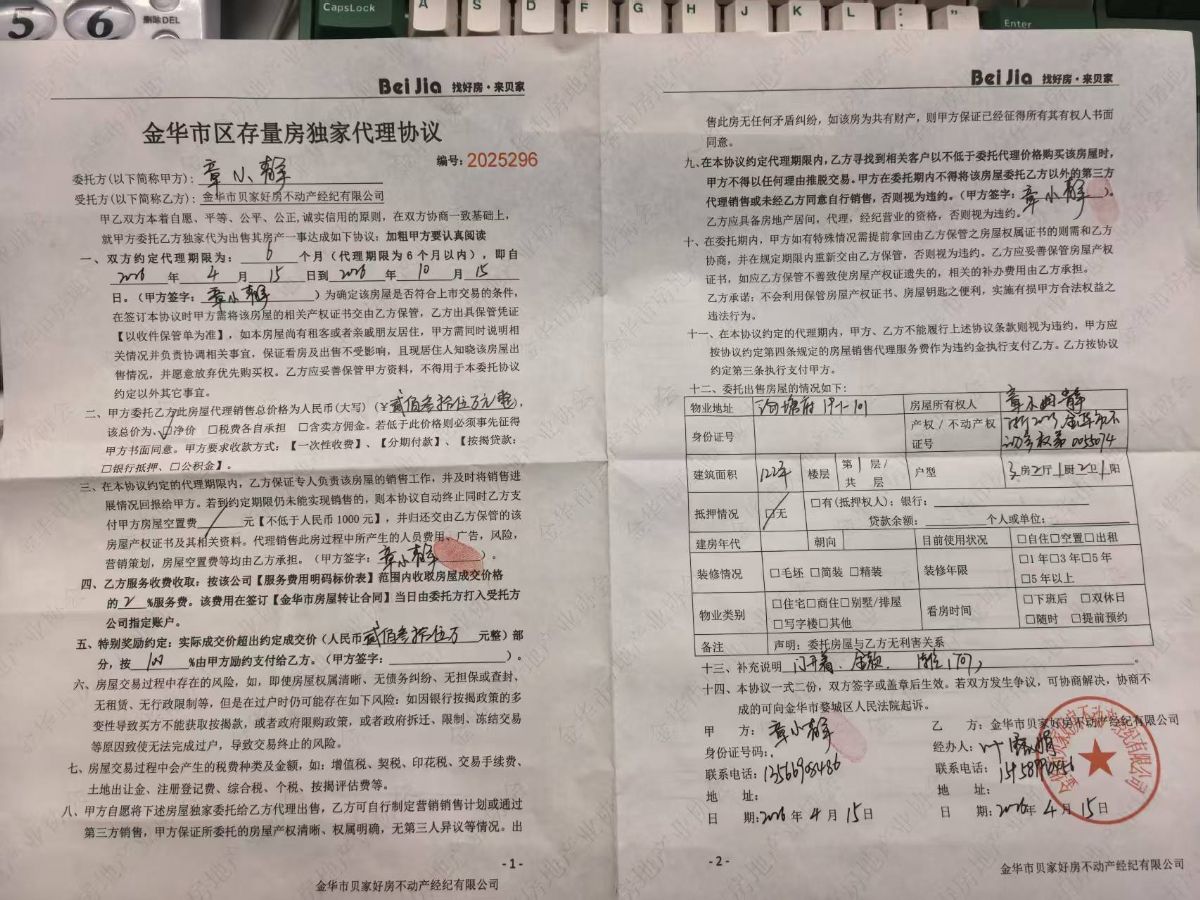 5 6 删除DEL
CapsLock A S D F G H J K L : ; " Enter
Bei Jia 找好房·来贝家
金华市区存量房独家代理协议
编号: 2025296
委托方(以下简称甲方): 章小静
受托方(以下简称乙方): 金华市贝家好房不动产经纪有限公司
甲乙双方本着自愿、平等、公平、公正,诚实信用的原则，在双方协商一致基础上，
就甲方委托乙方独家代为出售其房产一事达成如下协议: 加粗甲方要认真阅读
一、双方约定代理期限为: 6 个月（代理期限为6个月以内），即自
2026 年 4 月 15 日到 2026 年 10 月 15
日。（甲方签字: 章小静 ）为确定该房屋是否符合上市交易的条件，
在签订本协议时甲方需将该房屋的相关产权证书交由乙方保管，乙方出具保管凭证
【以收件保管单为准】，如本房屋尚有租客或者亲戚朋友居住，甲方需同时说明相
关情况并负责协调相关事宜，保证看房及出售不受影响，且现居住人知晓该房屋出
售情况，并愿意放弃优先购买权。乙方应妥善保管甲方资料，不得用于本委托协议
约定以外其它事宜。
二、甲方委托乙方此房屋代理销售总价格为人民币(大写)（￥贰佰叁拾伍万元整），
该总价为、☑净价 □税费各自承担 □含卖方佣金。若低于此价格则必须事先征得
甲方书面同意。甲方要求收款方式:【一次性收费】、【分期付款】、【按揭贷款:
□银行抵押、□公积金】。
三、在本协议约定的代理期限内，乙方保证专人负责该房屋的销售工作，并及时将销售进
展情况回报给甲方。若到约定期限仍未能实现销售的，则本协议自动终止同时乙方支
付甲方房屋空置费 / 元【不低于人民币1000元】，并归还交由乙方保管的该
房屋产权证书及其相关资料。代理销售此房过程中所产生的人员费用、广告，风险，
营销策划，房屋空置费等均由乙方承担。（甲方签字: 章小静 ）。
四、乙方服务收费收取: 按该公司【服务费用明码标价表】范围内收取房屋成交价格
的 2 %服务费。该费用在签订【金华市房屋转让合同】当日由委托方打入受托方
公司指定账户。
五、特别奖励约定: 实际成交价超出约定成交价（人民币贰佰叁拾伍万 元整）部
分，按 100 %由甲方励约支付给乙方。（甲方签字: ）。
六、房屋交易过程中存在的风险，如，即使房屋权属清晰、无债务纠纷、无担保或查封、
无租赁、无行政限制等，但是在过户时仍可能存在如下风险: 如因银行按揭政策的多
变性导致买方不能获取按揭款，或者政府限购政策，或者政府拆迁、限制、冻结交易
等原因致使无法完成过户，导致交易终止的风险。
七、房屋交易过程中会产生的税费种类及金额，如: 增值税、契税、印花税、交易手续费、
土地出让金、注册登记费、综合税、个税、按揭评估费等。
八、甲方自愿将下述房屋独家委托给乙方代理出售，乙方可自行制定营销销售计划或通过
第三方销售，甲方保证所委托的房屋产权清晰、权属明确，无第三人异议等情况。出
-1-
金华市贝家好房不动产经纪有限公司
Bei Jia 找好房·来贝家
售此房无任何矛盾纠纷，如该房为共有财产，则甲方保证已经征得所有其有权人书面
同意。
九、在本协议约定代理期限内，乙方寻找到相关客户以不低于委托代理价格购买该房屋时，
甲方不得以任何理由推脱交易。甲方在委托期内不得将该房屋委托乙方以外的第三方
代理销售或未经乙方同意自行销售，否则视为违约。（甲方签字: 章小静 ）。
乙方应具备房地产居间，代理，经纪营业的资格，否则视为违约。
十、在委托期内，甲方如有特殊情况需提前拿回由乙方保管之房屋权属证书的则需和乙方
协商，并在规定期限内重新交由乙方保管，否则视为违约。乙方应妥善保管房屋产权
证书，如应乙方保管不善致使房屋产权证遗失的，相关的补办费用由乙方承担。
乙方承诺: 不会利用保管房屋产权证书、房屋钥匙之便利，实施有损甲方合法权益之
违法行为。
十一、在本协议约定的代理期内，甲方、乙方不能履行上述协议条款则视为违约，甲方应
按协议约定第四条规定的房屋销售代理服务费作为违约金执行支付乙方。乙方按协议
约定第三条执行支付甲方。
十二、委托出售房屋的情况如下:
物业地址 府 19-1-101 房屋所有权人 章小静
身份证号 产权／不动产权证号 金华市不动产权第0055074
建筑面积 122 楼层 第1层/共 层 户型 3房2厅1厨2卫1阳
抵押情况 ☑无 □有(抵押权人): 银行:
贷款余额: 个人或单位:
建房年代 朝向 目前使用状况 □自住□空置□出租
装修情况 □毛坯 □简装 □精装 装修年限 □1年□3年□5年
□5年以上
物业类别 □住宅□商住□别墅/排屋 看房时间 □下班后 □双休日
□写字楼□其他 □随时 □提前预约
备注 声明: 委托房屋与乙方无利害关系
十三、补充说明
十四、本协议一式二份，双方签字或盖章后生效。若双方发生争议，可协商解决，协商不
成的可向金华市婺城区人民法院起诉。
甲 方: 章小静 乙 方: 金华市贝家好房不动产经纪有限公司
身份证号码: 经办人: 叶
联系电话: 13566903486 联系电话:
地 址: 地 址:
日 期: 2026年4月15日 日 期: 2026年4月15日
-2-
金华市贝家好房不动产经纪有限公司